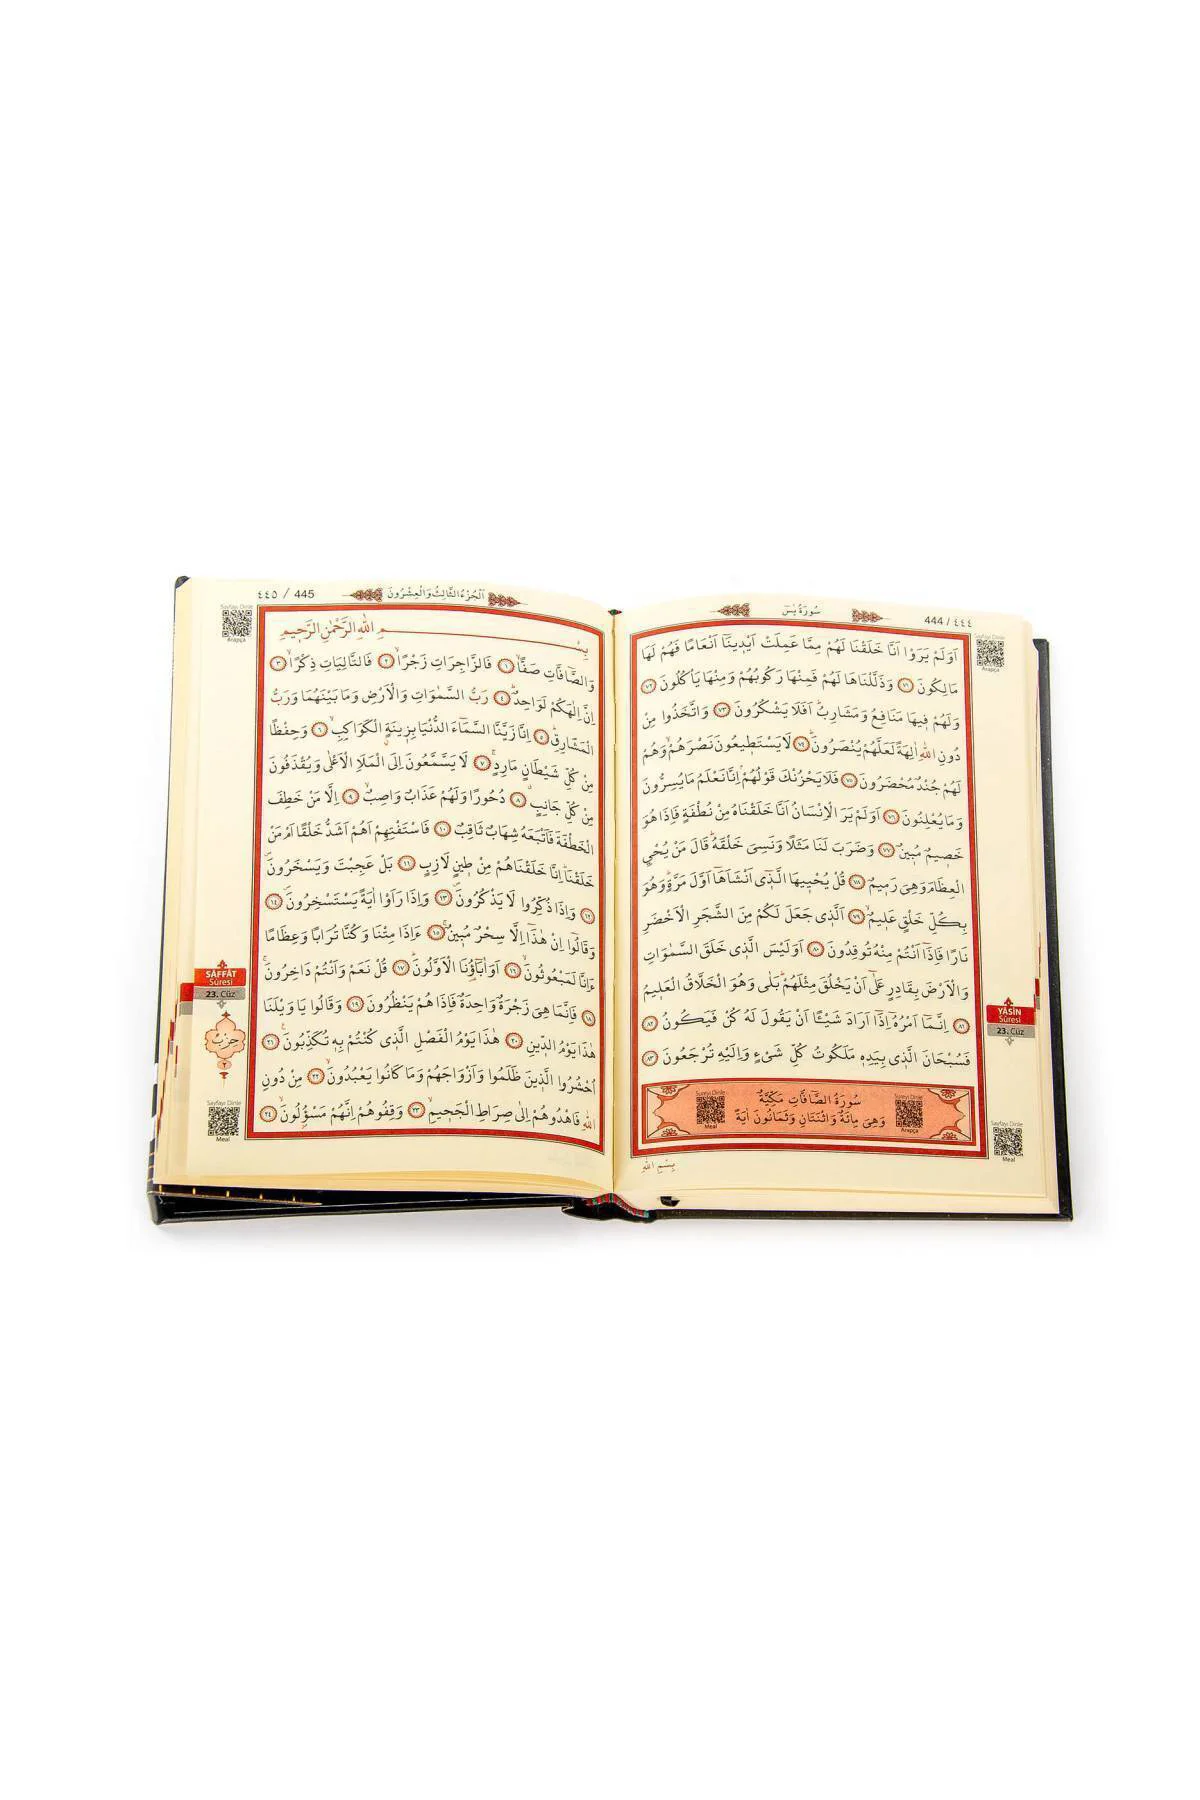 سُورَةُ يٰسٓ
444 / ٤٤٤
Sayfayı Dinle
Arapça
اَوَلَمْ يَرَوْا اَنَّا خَلَقْنَا لَهُمْ مِمَّا عَمِلَتْ اَيْدٖينَٓا اَنْعَاماً فَهُمْ لَهَا
مَالِكُونَ ٧١ وَذَلَّلْنَاهَا لَهُمْ فَمِنْهَا رَكُوبُهُمْ وَمِنْهَا يَأْكُلُونَ ٧٢
وَلَهُمْ فٖيهَا مَنَافِعُ وَمَشَارِبُۜ اَفَلَا يَشْكُرُونَ ٧٣ وَاتَّخَذُوا مِنْ
دُونِ اللّٰهِ اٰلِهَةً لَعَلَّهُمْ يُنْصَرُونَۜ ٧٤ لَا يَسْتَطٖيعُونَ نَصْرَهُمْۙ وَهُمْ
لَهُمْ جُنْدٌ مُحْضَرُونَ ٧٥ فَلَا يَحْزُنْكَ قَوْلُهُمْۢ اِنَّا نَعْلَمُ مَا يُسِرُّونَ
وَمَا يُعْلِنُونَ ٧٦ اَوَلَمْ يَرَ الْاِنْسَانُ اَنَّا خَلَقْنَاهُ مِنْ نُطْفَةٍ فَاِذَا هُوَ
خَصٖيمٌ مُبٖينٌ ٧٧ وَضَرَبَ لَنَا مَثَلاً وَنَسِيَ خَلْقَهُۜ قَالَ مَنْ يُحْيِ
الْعِظَامَ وَهِيَ رَمٖيمٌ ٧٨ قُلْ يُحْيٖيهَا الَّذٖٓي اَنْشَاَهَٓا اَوَّلَ مَرَّةٍۜ وَهُوَ
بِكُلِّ خَلْقٍ عَلٖيمٌۙ ٧٩ اَلَّذٖي جَعَلَ لَكُمْ مِنَ الشَّجَرِ الْاَخْضَرِ
نَاراً فَاِذَٓا اَنْتُمْ مِنْهُ تُوقِدُونَ ٨٠ اَوَلَيْسَ الَّذٖي خَلَقَ السَّمٰوَاتِ
وَالْاَرْضَ بِقَادِرٍ عَلٰٓى اَنْ يَخْلُقَ مِثْلَهُمْۜ بَلٰى وَهُوَ الْخَلَّاقُ الْعَلٖيمُ
٨١ اِنَّمَٓا اَمْرُهُٓ اِذَٓا اَرَادَ شَيْـٔاً اَنْ يَقُولَ لَهُ كُنْ فَيَكُونُ ٨٢
فَسُبْحَانَ الَّذٖي بِيَدِهٖ مَلَكُوتُ كُلِّ شَيْءٍ وَاِلَيْهِ تُرْجَعُونَ ٨٣
YÂSİN
Sûresi
23. Cüz
سُورَةُ الصَّٓافَّاتِ مَكِّيَّةٌ
وَهِيَ مِائَةٌ وَاثْنَتَانِ وَثَمَانُونَ اٰيَةً
Sureyi Dinle
Arapça
Sureyi Dinle
Meal
Sayfayı Dinle
Meal
بِسْمِ اللّٰهِ
اَلْجُزْءُ الثَّالِثُ وَالْعِشْرُونَ
٤٤٥ / 445
Sayfayı Dinle
Arapça
بِسْمِ اللّٰهِ الرَّحْمٰنِ الرَّحٖيمِ
وَالصَّٓافَّاتِ صَفاًّۙ ١ فَالزَّاجِرَاتِ زَجْراًۙ ٢ فَالتَّالِيَاتِ ذِكْراًۙ ٣
اِنَّ اِلٰهَكُمْ لَوَاحِدٌۜ ٤ رَبُّ السَّمٰوَاتِ وَالْاَرْضِ وَمَا بَيْنَهُمَا وَرَبُّ
الْمَشَارِقِۜ ٥ اِنَّا زَيَّنَّا السَّمَٓاءَ الدُّنْيَا بِزٖينَةٍۨ الْكَوَاكِبِۙ ٦ وَحِفْظاً
مِنْ كُلِّ شَيْطَانٍ مَارِدٍۚ ٧ لَا يَسَّمَّعُونَ اِلَى الْمَلَاِ الْاَعْلٰى وَيُقْذَفُونَ
مِنْ كُلِّ جَانِبٍۗ ٨ دُحُوراً وَلَهُمْ عَذَابٌ وَاصِبٌۙ ٩ اِلَّا مَنْ خَطِفَ
الْخَطْفَةَ فَاَتْبَعَهُ شِهَابٌ ثَاقِبٌ ١٠ فَاسْتَفْتِهِمْ اَهُمْ اَشَدُّ خَلْقاً اَمْ مَنْ
خَلَقْنَاۜ اِنَّا خَلَقْنَاهُمْ مِنْ طٖينٍ لَازِبٍ ١١ بَلْ عَجِبْتَ وَيَسْخَرُونَۖ
١٢ وَاِذَا ذُكِّرُوا لَا يَذْكُرُونَۖ ١٣ وَاِذَا رَاَوْا اٰيَةً يَسْتَسْخِرُونَۖ ١٤
وَقَالُٓوا اِنْ هٰذَٓا اِلَّا سِحْرٌ مُبٖينٌۚ ١٥ ءَاِذَا مِتْنَا وَكُنَّا تُرَاباً وَعِظَاماً
ءَاِنَّا لَمَبْعُوثُونَۙ ١٦ اَوَاٰبَٓاؤُ۬نَا الْاَوَّلُونَۜ ١٧ قُلْ نَعَمْ وَاَنْتُمْ دَاخِرُونَۚ
١٨ فَاِنَّمَا هِيَ زَجْرَةٌ وَاحِدَةٌ فَاِذَا هُمْ يَنْظُرُونَ ١٩ وَقَالُوا يَا وَيْلَنَا
هٰذَا يَوْمُ الدّٖينِ ٢٠ هٰذَا يَوْمُ الْفَصْلِ الَّذٖي كُنْتُمْ بِهٖ تُكَذِّبُونَ۟ ٢١
اُحْشُرُوا الَّذٖينَ ظَلَمُوا وَاَزْوَاجَهُمْ وَمَا كَانُوا يَعْبُدُونَۙ ٢٢ مِنْ دُونِ
اللّٰهِ فَاهْدُوهُمْ اِلٰى صِرَاطِ الْجَحٖيمِۙ ٢٣ وَقِفُوهُمْ اِنَّهُمْ مَسْؤُ۫لُونَۙ ٢٤
SÂFFÂT
Sûresi
23. Cüz
حزب
٢
Sayfayı Dinle
Meal